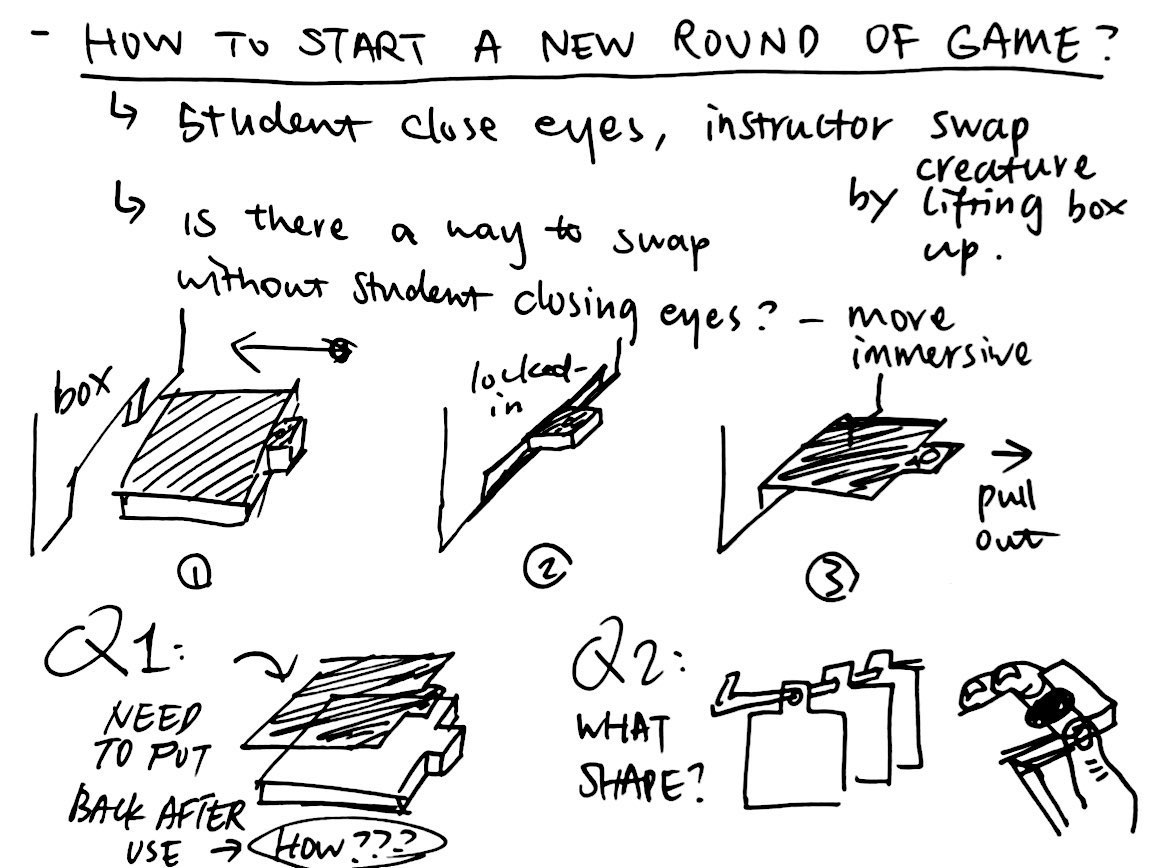 - HOW TO START A NEW ROUND OF GAME?
↳ Student close eyes, instructor swap
creature
by lifting box
up.
↳ is there a way to swap
without student closing eyes? – more
immersive
box
locked-
in
pull
out
①
②
③
Q1:
NEED
TO PUT
BACK AFTER
USE → How???
Q2:
WHAT
SHAPE?